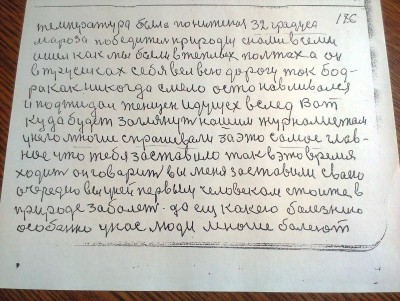 186
температура была понижена 32 градуса
мароза победител природы снами всеми
ишел как мы были втеплых полтах а он
в трусиках себя вел всю дорогу так бод-
ра как никогда смело останавливался
и поджидал женщен идущех вслед Вот
куда будет заглянут нашим журналистам
унего многие спрашивали за это самое глав-
ное что тебя заставило так вэто время
ходит он говарит вы меня заставили сваею
очередю вы уней первым человеком стоите в
природе заболет. да ещ какею болезнию
особенно унас люди многие болеют